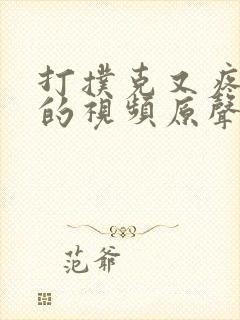 打撲克又疼
的視頻原聲
范爺